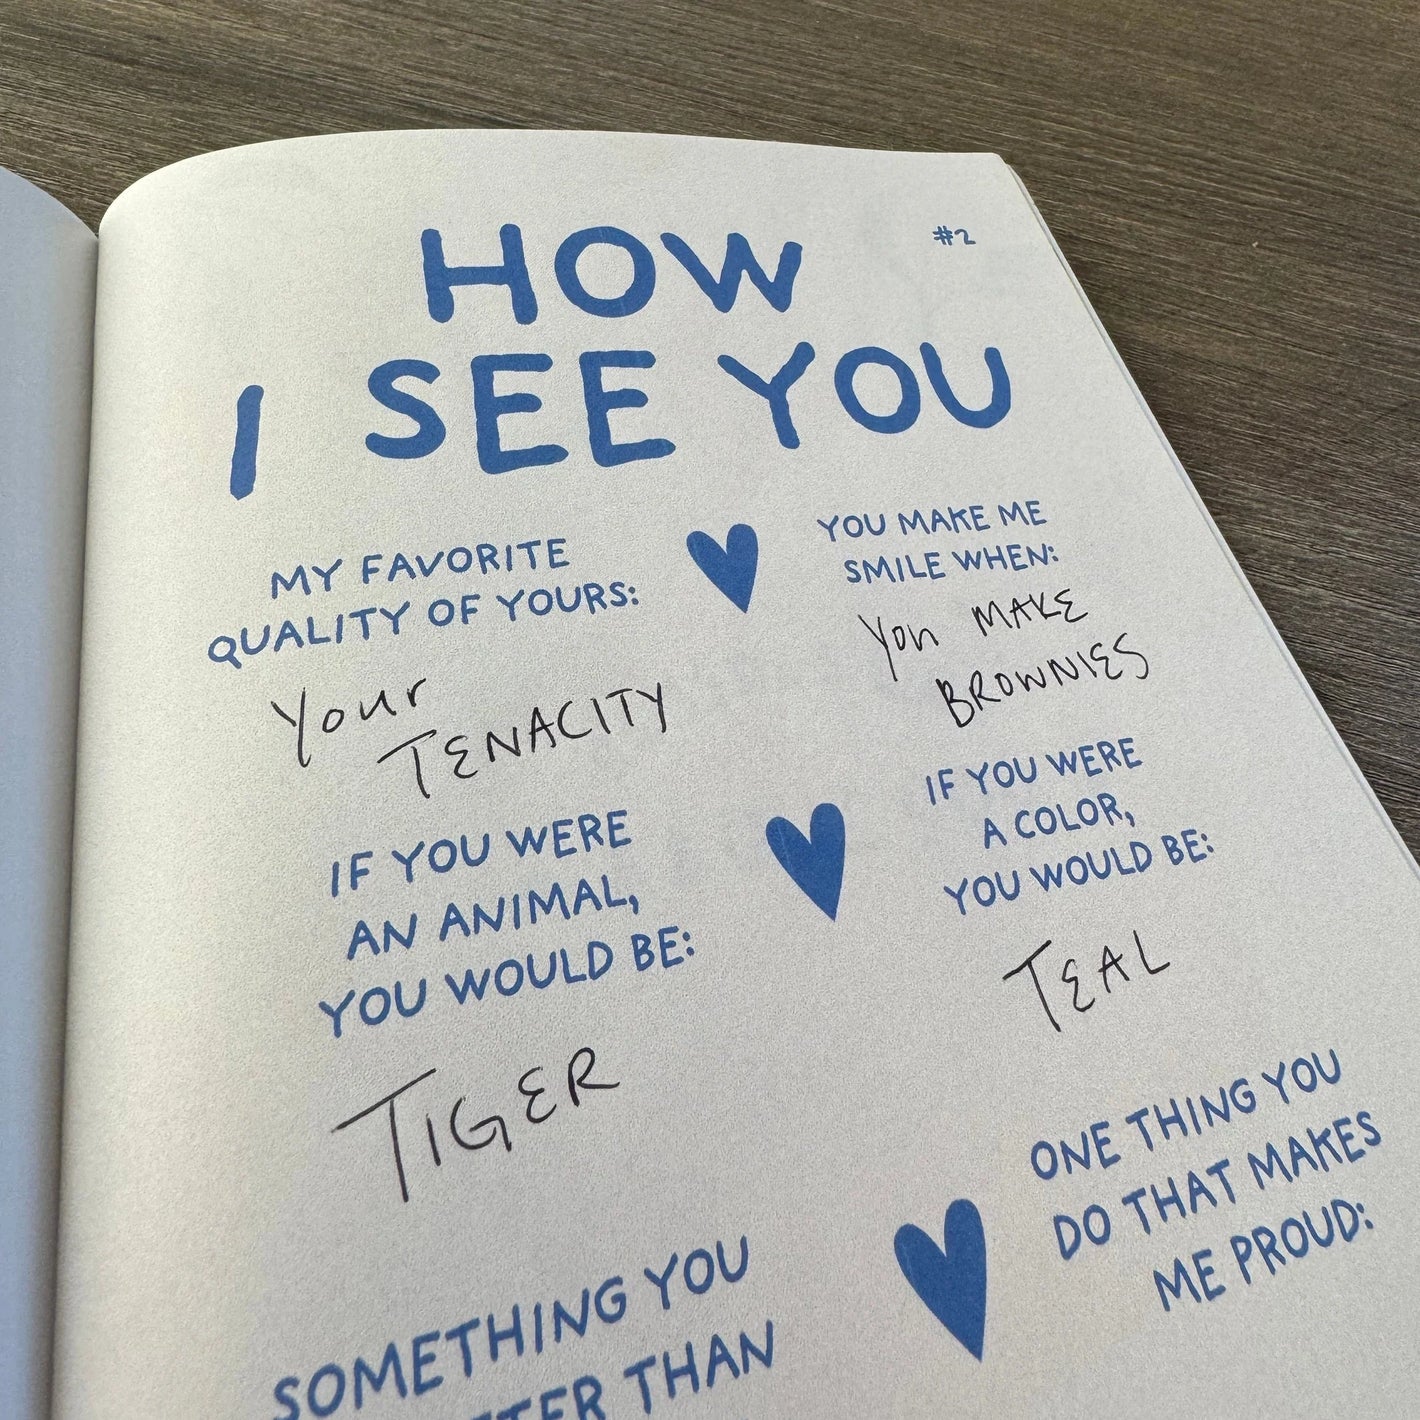 HOW
I SEE YOU
#2
MY FAVORITE
QUALITY OF YOURS:
Your
TENACITY
YOU MAKE ME
SMILE WHEN:
You MAKE
BROWNIES
IF YOU WERE
AN ANIMAL,
YOU WOULD BE:
TIGER
IF YOU WERE
A COLOR,
YOU WOULD BE:
TEAL
SOMETHING YOU
THAN
ONE THING YOU
DO THAT MAKES
ME PROUD: